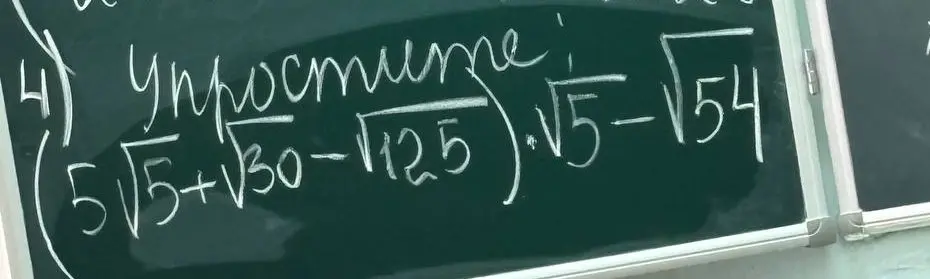 4) Упростите:
(5√5+√30-√125)·√5-√54